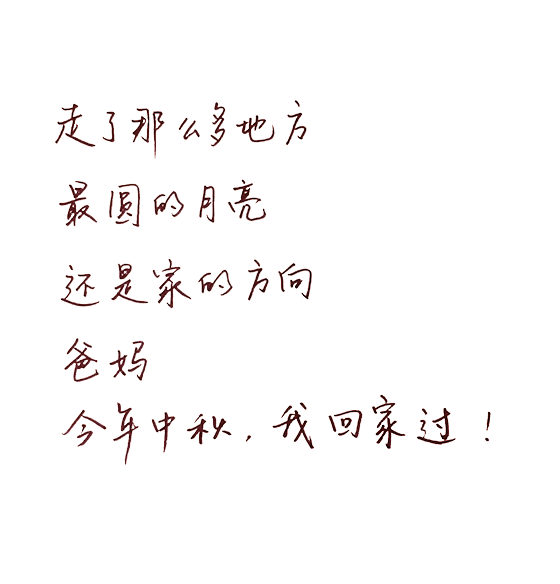 走了那么多地方
最圆的月亮
还是家的方向
爸妈
今年中秋，我回家过！